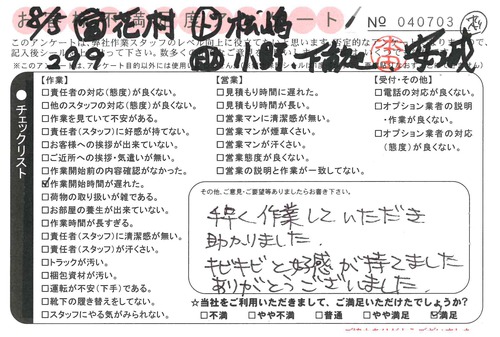 お 不満 度 ート
No 040703
8/5 富花村 ㊤松嶋
299
このアンケートは、弊社作業スタッフのレベル向上に役立てたいと思います。否定的な
記入後シールを
※このアンケートは、アンケート目的以外には使用い
チェックリスト
【作業】
□責任者の対応(態度)が良くない。
□他のスタッフの対応(態度)が良くない。
□作業を見ていて不安がある。
□責任者(スタッフ)に好感が持てない。
□お客様への挨拶が出来ていない。
□ご近所への挨拶・気遣いが無い。
□作業開始前の内容確認がなかった。
☑作業開始時間が遅れた。
□荷物の取り扱いが雑である。
□お部屋の養生が出来ていない。
□作業時間が長すぎる。
□責任者(スタッフ)に清潔感が無い。
□責任者(スタッフ)が汗くさい。
□トラックが汚い。
□梱包資材が汚い。
□運転が不安(下手)である。
□靴下の履き替えをしてない。
□スタッフにやる気がみられない。
【営業】
□見積もり時間に遅れた。
□見積もり時間が長い。
□営業マンに清潔感が無い。
□営業マンが煙草くさい。
□営業マンが汗くさい。
□営業態度が良くない。
□営業の説明と作業が一致してない。
【受付・その他】
□電話の対応が良くない。
□オプション業者の説明
・作業が良くない。
□オプション業者の対応
(態度)が良くない。
その他、ご意見・ご要望等ありましたらお書き下さい。
手早く作業していただき
助かりました.
キビキビと好感が持てました
ありがとうございました.
☆当社をご利用いただきまして、ご満足いただけたでしょうか?
□不満 □やや不満 □普通 □やや満足 ☑満足